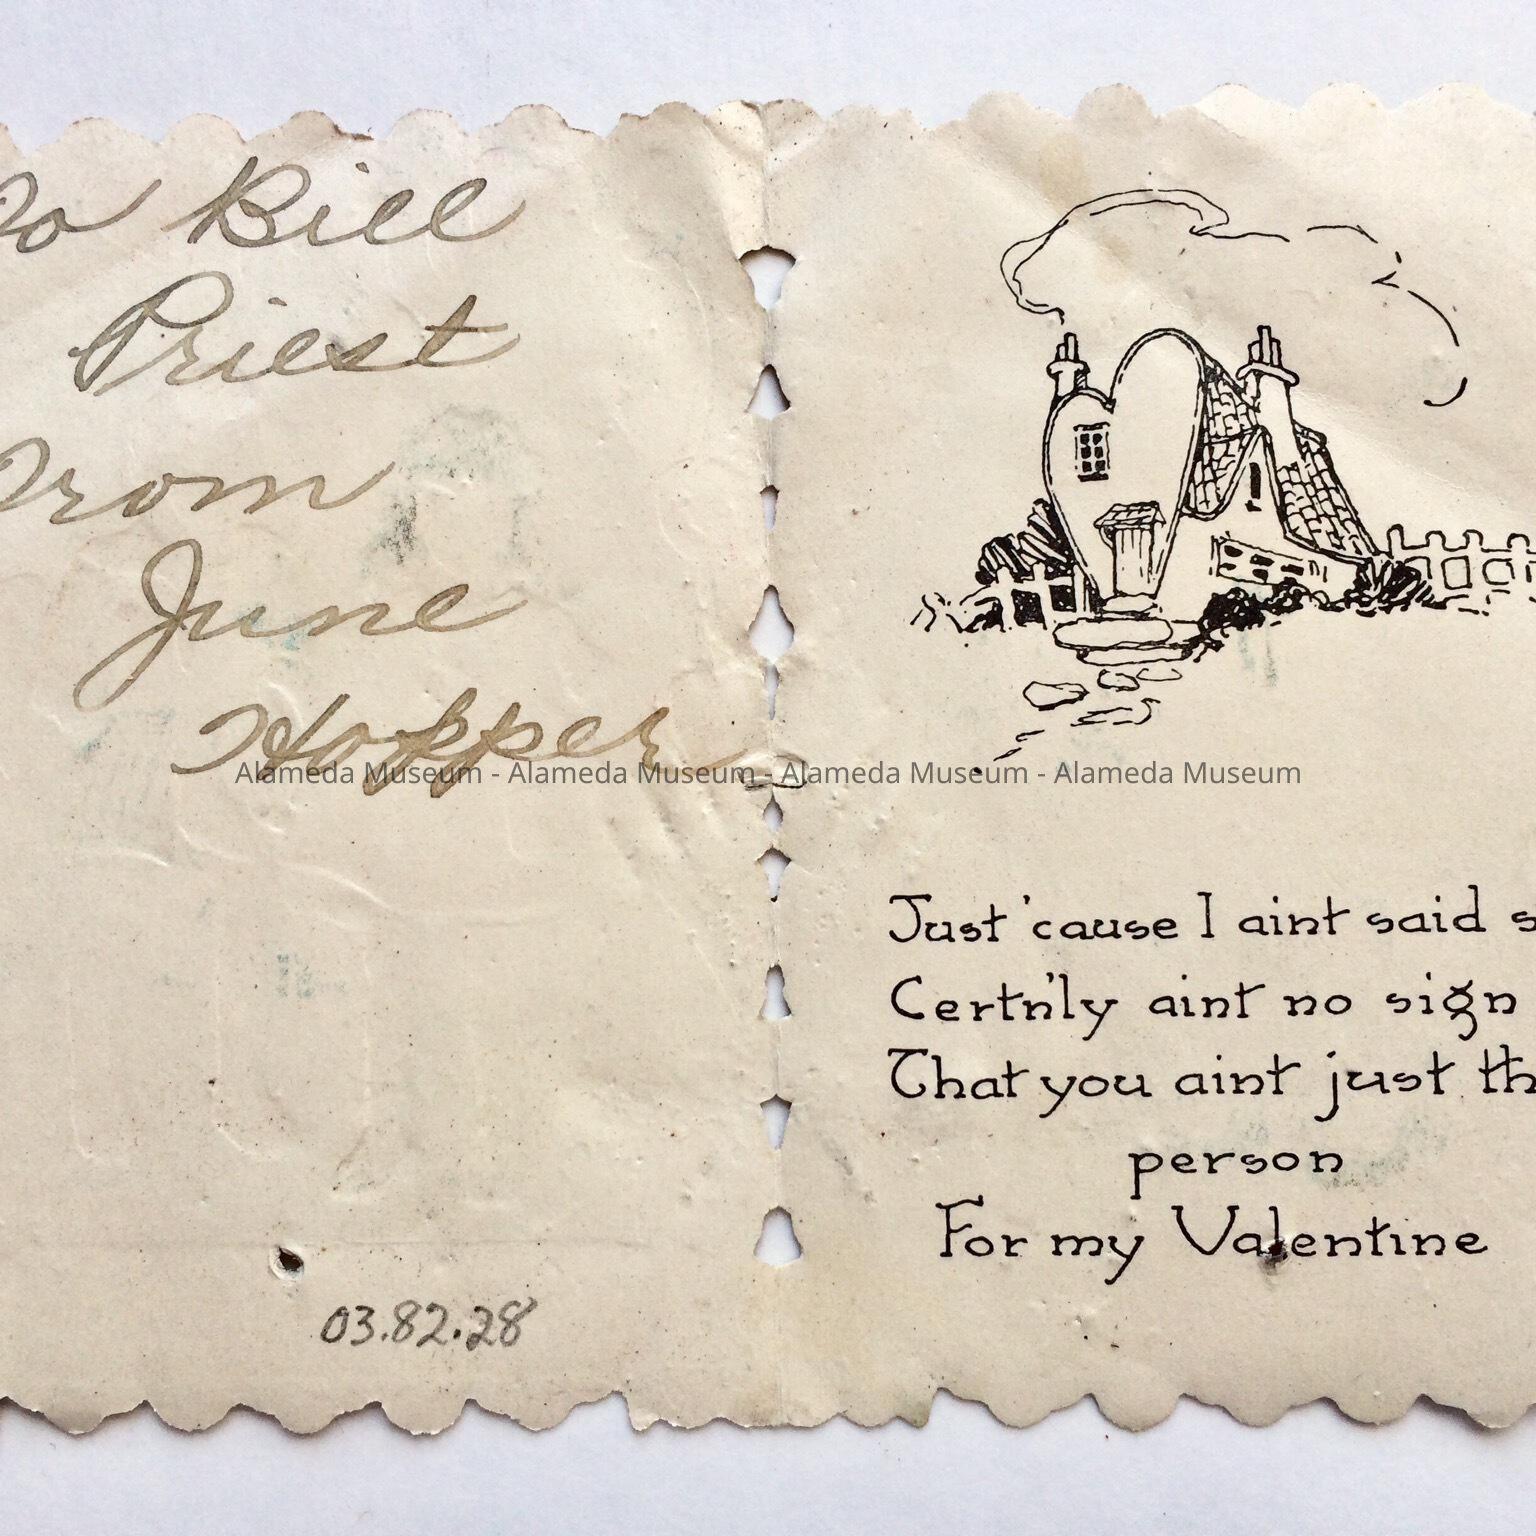 To Bill
Priest
From
June
Hopper
Alameda Museum - Alameda Museum - Alameda Museum - Alameda Museum
03.82.28
Just 'cause I aint said s
Certn'ly aint no sign
That you aint just th
person
For my Valentine